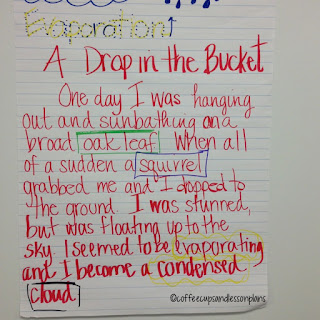 Evaporation↑
A Drop in the Bucket
One day I was hanging
out and sunbathing on a
broad oak leaf. When all
of a sudden a squirrel
grabbed me and I dropped to
the ground. I was stunned,
but was floating up to the
sky. I seemed to be evaporating
and I became a condensed
cloud.
@coffeecupsandlessonplans